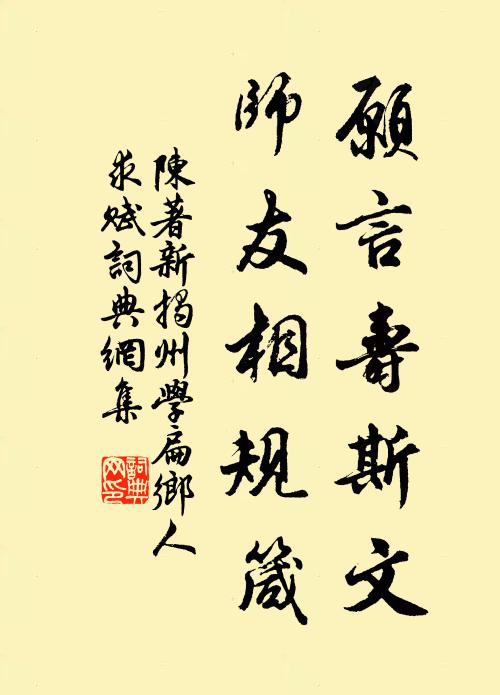 願言壽斯文
師友相規箴
陳著新揭州學扁鄉人
求賦詞典網集
詞典
网印